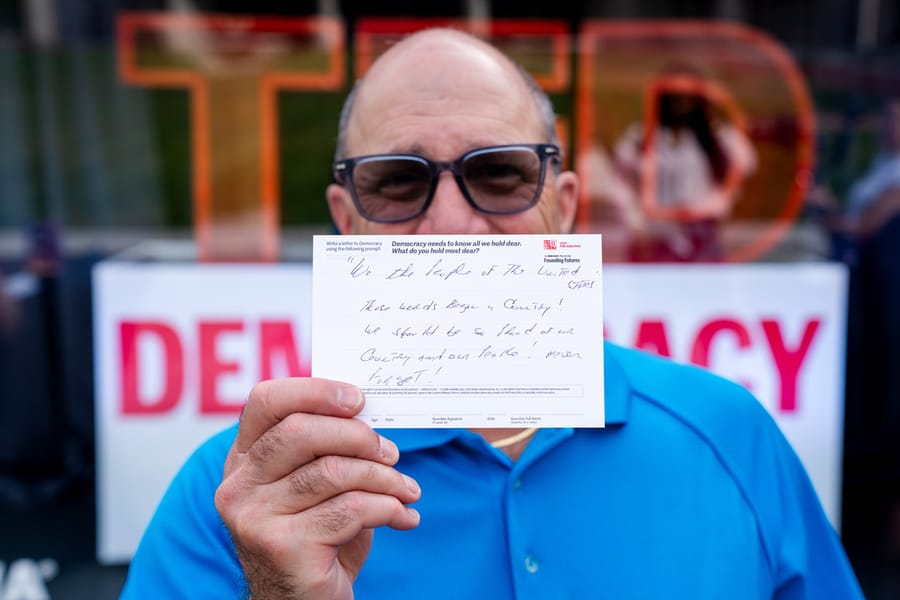 TED
DEMOCRACY
Write a letter to Democracy
using the following prompt:
Democracy needs to know all we hold dear.
What do you hold most dear?
Founding Futures
"We the People of The United
States
Those words Began a Country!
We should be so Proud of our
Country and our People! never
Forget!
Age State Guardian Signature Date Guardian Full Name